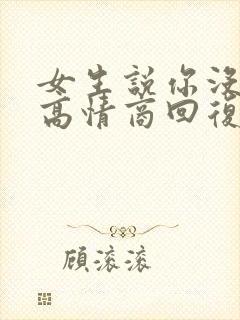 女生說你沒
高情商回復
顧滾滾